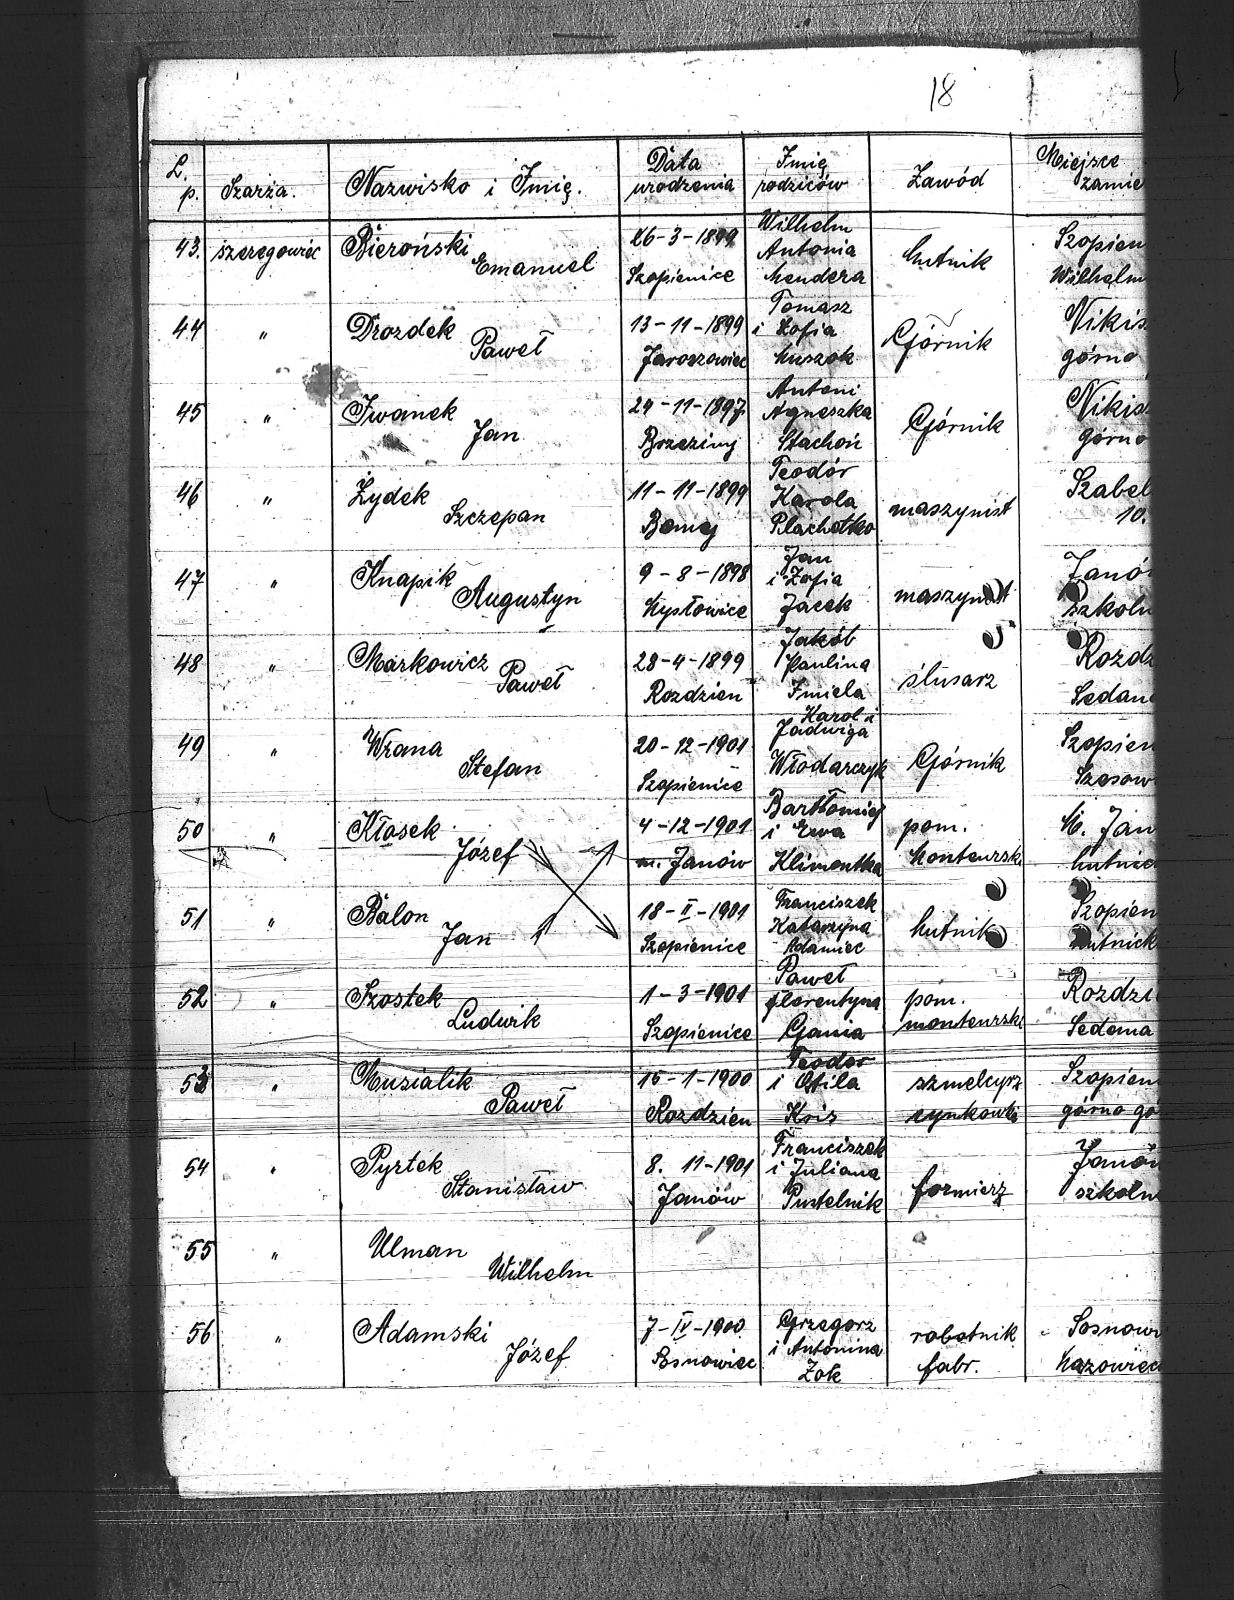 18
L.p. Szarża. Nazwisko i Imię. Data urodzenia Imię rodziców Zawód Miejsce zamie
43. szeregowiec Bieroński Emanuel 26-3-1899 Szopienice Wilhelm Antonia Mendera hutnik Szopien Wilhelm
44 " Drozdek Paweł 13-11-1899 Jaroszowiec Tomasz i Zofia Muszok Górnik Nikis górno
45 " Iwanek Jan 24-11-1897 Brzeziny Antoni Agneszka Stachoń Górnik Nikis Górno
46 " Żydek Szczepan 11-11-1899 Teodór Karola Plachetko maszynist Szabel 10.
47 " Knapik Augustyn 9-8-1898 Mysłowice Jan i Zofia Jacek maszynist Janó szkoln
48 " Markowicz Paweł 28-4-1899 Rozdzien Jakób Paulina Imiela ślusarz Rozdz Sedan
49 " Wrana Stefan 20-12-1901 Szopienice Karol i Jadwiga Włodarczyk Górnik Szopien Szosow
50 " Kłosek Józef 4-12-1901 m. Janów Bartłomiej i Ewa Klimontka pom. Monterski M. Jan hutnic
51 " Balon Jan 18-II-1901 Szopienice Franciszek Katarzyna Adamiec hutnik Szopien hutnick
52 " Szostek Ludwik 1-3-1901 Szopienice Paweł florentyna Gania pom. monterski Rozdzi Sedana
53 " Musialik Paweł 15-1-1900 Rozdzien Teodor i Otila Kris szmelcyrz cynkowki Szopien górno gó
54 " Pyrtek Stanisław 8. 11-1901 Janów Franciszek i Juliana Pustelnik formierz Janów szkoln
55 " Ulman Wilhelm
56 " Adamski Józef 7-IV-1900 Sosnowiec Grzegorz i Antonina Żok robotnik fabr. Sosnowi Mazowiec